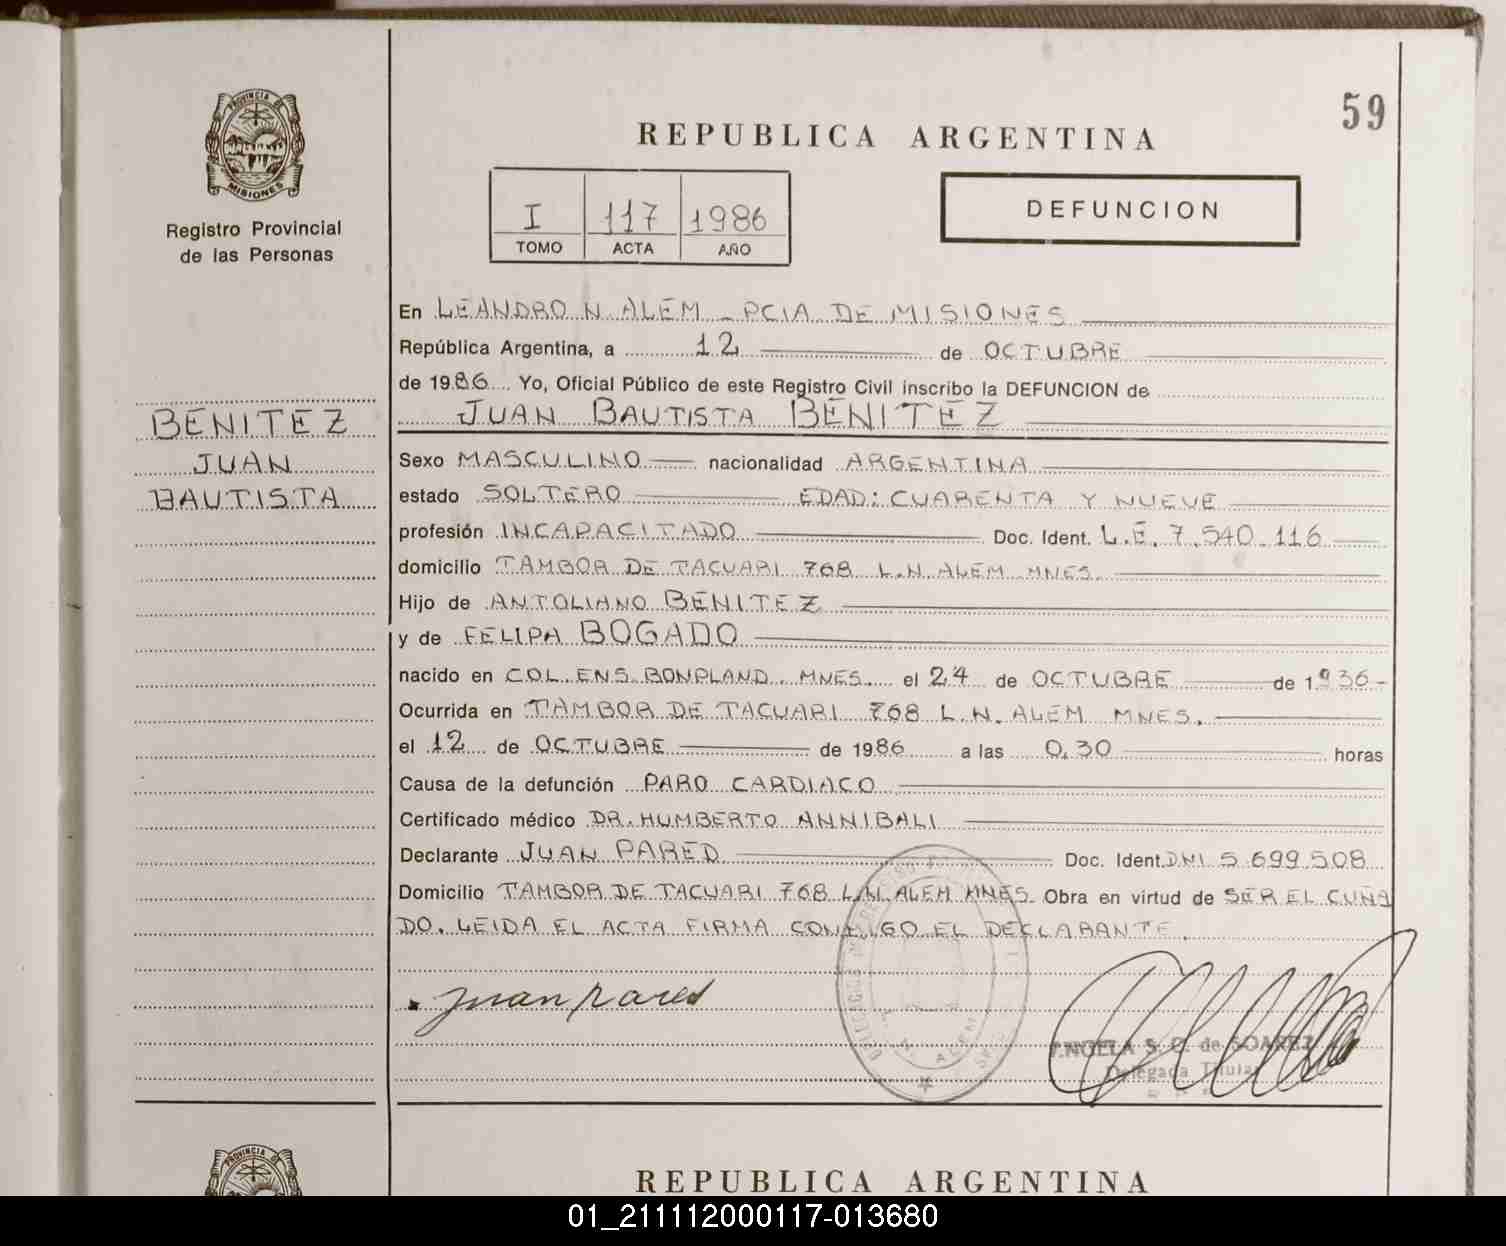 59
PROVINCIA DE
MISIONES
Registro Provincial
de las Personas
REPUBLICA ARGENTINA
I 117 1986
TOMO ACTA AÑO
DEFUNCION
En LEANDRO N. ALEM - PCIA DE MISIONES
República Argentina, a 12 de OCTUBRE
de 1986 Yo, Oficial Público de este Registro Civil inscribo la DEFUNCION de
JUAN BAUTISTA BENITEZ
BENITEZ
JUAN
BAUTISTA
Sexo MASCULINO nacionalidad ARGENTINA
estado SOLTERO EDAD: CUARENTA Y NUEVE
profesión INCAPACITADO Doc. Ident. L.E. 7.540.116
domicilio TAMBOR DE TACUARI 768 L.N.ALEM MNES.
Hijo de ANTOLIANO BENITEZ
y de FELIPA BOGADO
nacido en COL. ENS. BONPLAND. MNES. el 24 de OCTUBRE de 1936-
Ocurrida en TAMBOR DE TACUARI 768 L.N. ALEM MNES.
el 12 de OCTUBRE de 1986 a las 0,30 horas
Causa de la defunción PARO CARDIACO
Certificado médico DR. HUMBERTO ANNIBALI
Declarante JUAN PARED Doc. Ident. DNI 5.699.508
Domicilio TAMBOR DE TACUARI 768 L.N. ALEM MNES. Obra en virtud de SER EL CUÑA
DO. LEIDA EL ACTA FIRMA CONMIGO EL DECLARANTE.
Juan Pared
S. C. de SOAREZ
Delegada Titular
L. N. ALEM
PROVINCIA DE
REPUBLICA ARGENTINA
01_211112000117-013680